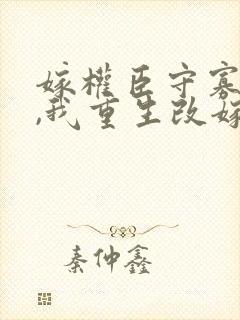 嫁權臣守寡
,我重生改嫁
秦仲鑫